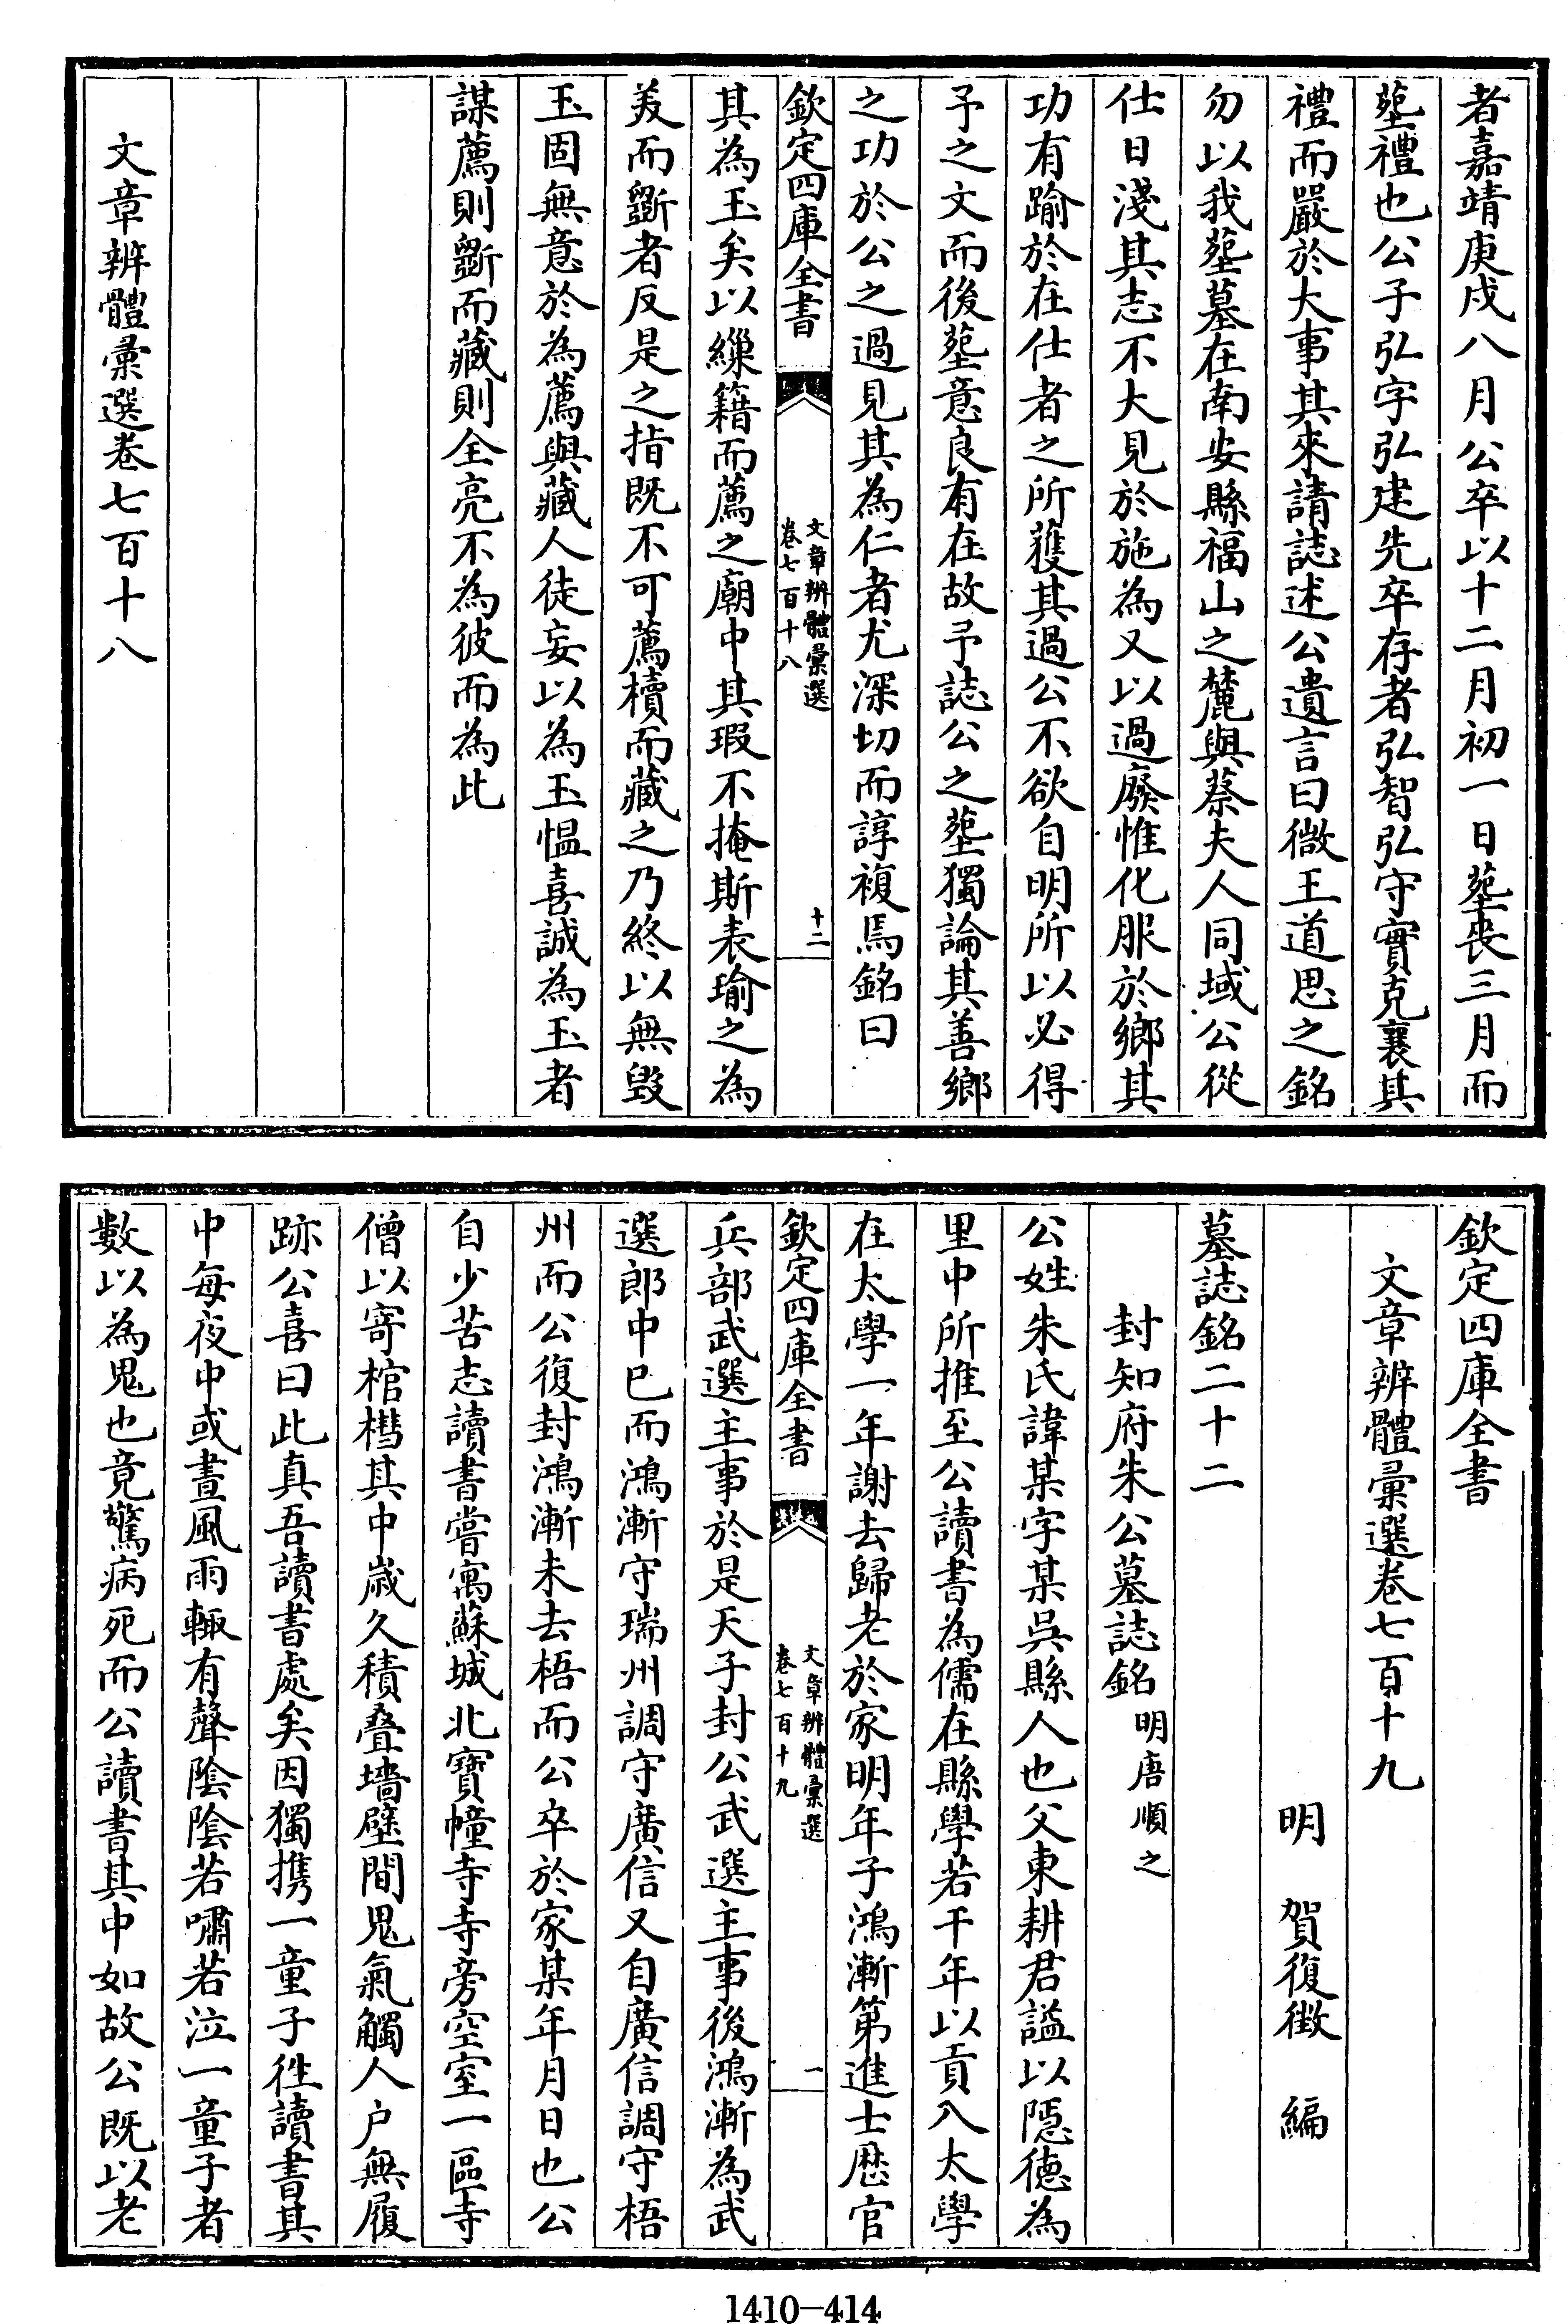 者嘉靖庚戌八月公卒以十二月初一日塟喪三月而
塟禮也公子弘字弘建先卒存者弘智弘守實克襄其
禮而嚴於大事其來請誌述公遺言曰微王道思之銘
勿以我塟墓在南安縣福山之麓與蔡夫人同域公從
仕日淺其志不大見於施為又以過廢惟化服於鄉其
功有踰於在仕者之所獲其過公不欲自明所以必得
予之文而後塟意良有在故予誌公之塟獨論其善鄉
之功於公之過見其為仁者尤深切而諄複焉銘曰
欽定四庫全書
文章辨體彙選
卷七百十八
十二
其為玉矣以繅籍而薦之廟中其瑕不掩斯表瑜之為
美而斵者反是之指既不可薦櫝而藏之乃終以無毀
玉固無意於為薦與藏人徒妄以為玉愠喜誠為玉者
謀薦則斵而藏則全亮不為彼而為此
文章辨體彙選卷七百十八
欽定四庫全書
文章辨體彙選卷七百十九
明 賀復徵 編
墓誌銘二十二
封知府朱公墓誌銘明唐順之
公姓朱氏諱某字某吳縣人也父東耕君謚以隱德為
里中所推至公讀書為儒在縣學若干年以貢入太學
在太學一年謝去歸老於家明年子鴻漸第進士歷官
欽定四庫全書
文章辨體彙選
卷七百十九
一
兵部武選主事於是天子封公武選主事後鴻漸為武
選郎中已而鴻漸守瑞州調守廣信又自廣信調守梧
州而公復封鴻漸未去梧而公卒於家某年月日也公
自少苦志讀書嘗寓蘇城北寶幢寺寺旁空室一區寺
僧以寄棺槥其中歲久積疊墻壁間鬼氣觸人户無履
跡公喜曰此真吾讀書處矣因獨携一童子徃讀書其
中每夜中或晝風雨輙有聲陰陰若嘯若泣一童子者
數以為鬼也竟驚病死而公讀書其中如故公既以老
1410—414